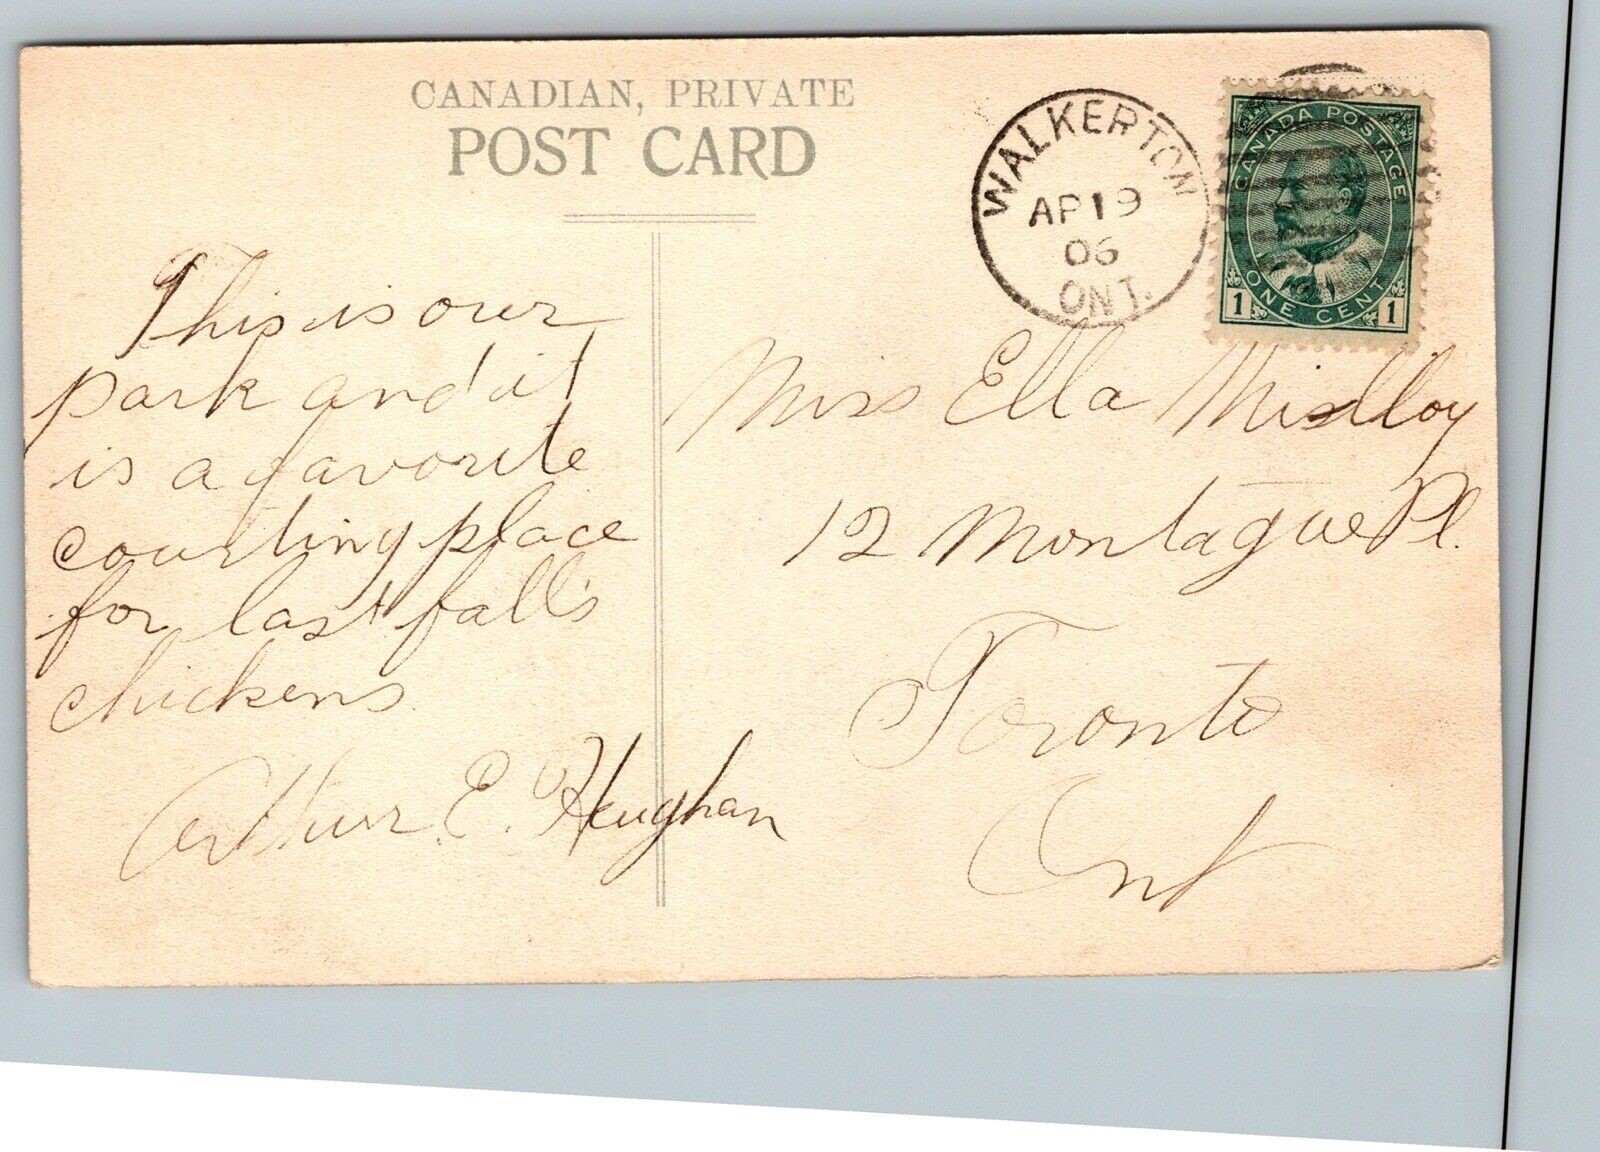 CANADIAN, PRIVATE
POST CARD
WALKERTON
AP 19
06
ONT.
CANADA POSTAGE
1 ONE CENT 1
This is our
park and it
is a favorite
courting place
for last fall's
chickens
Arthur. E. Haughan
Miss Ella
12 Montague Pl.
Toronto
Ont